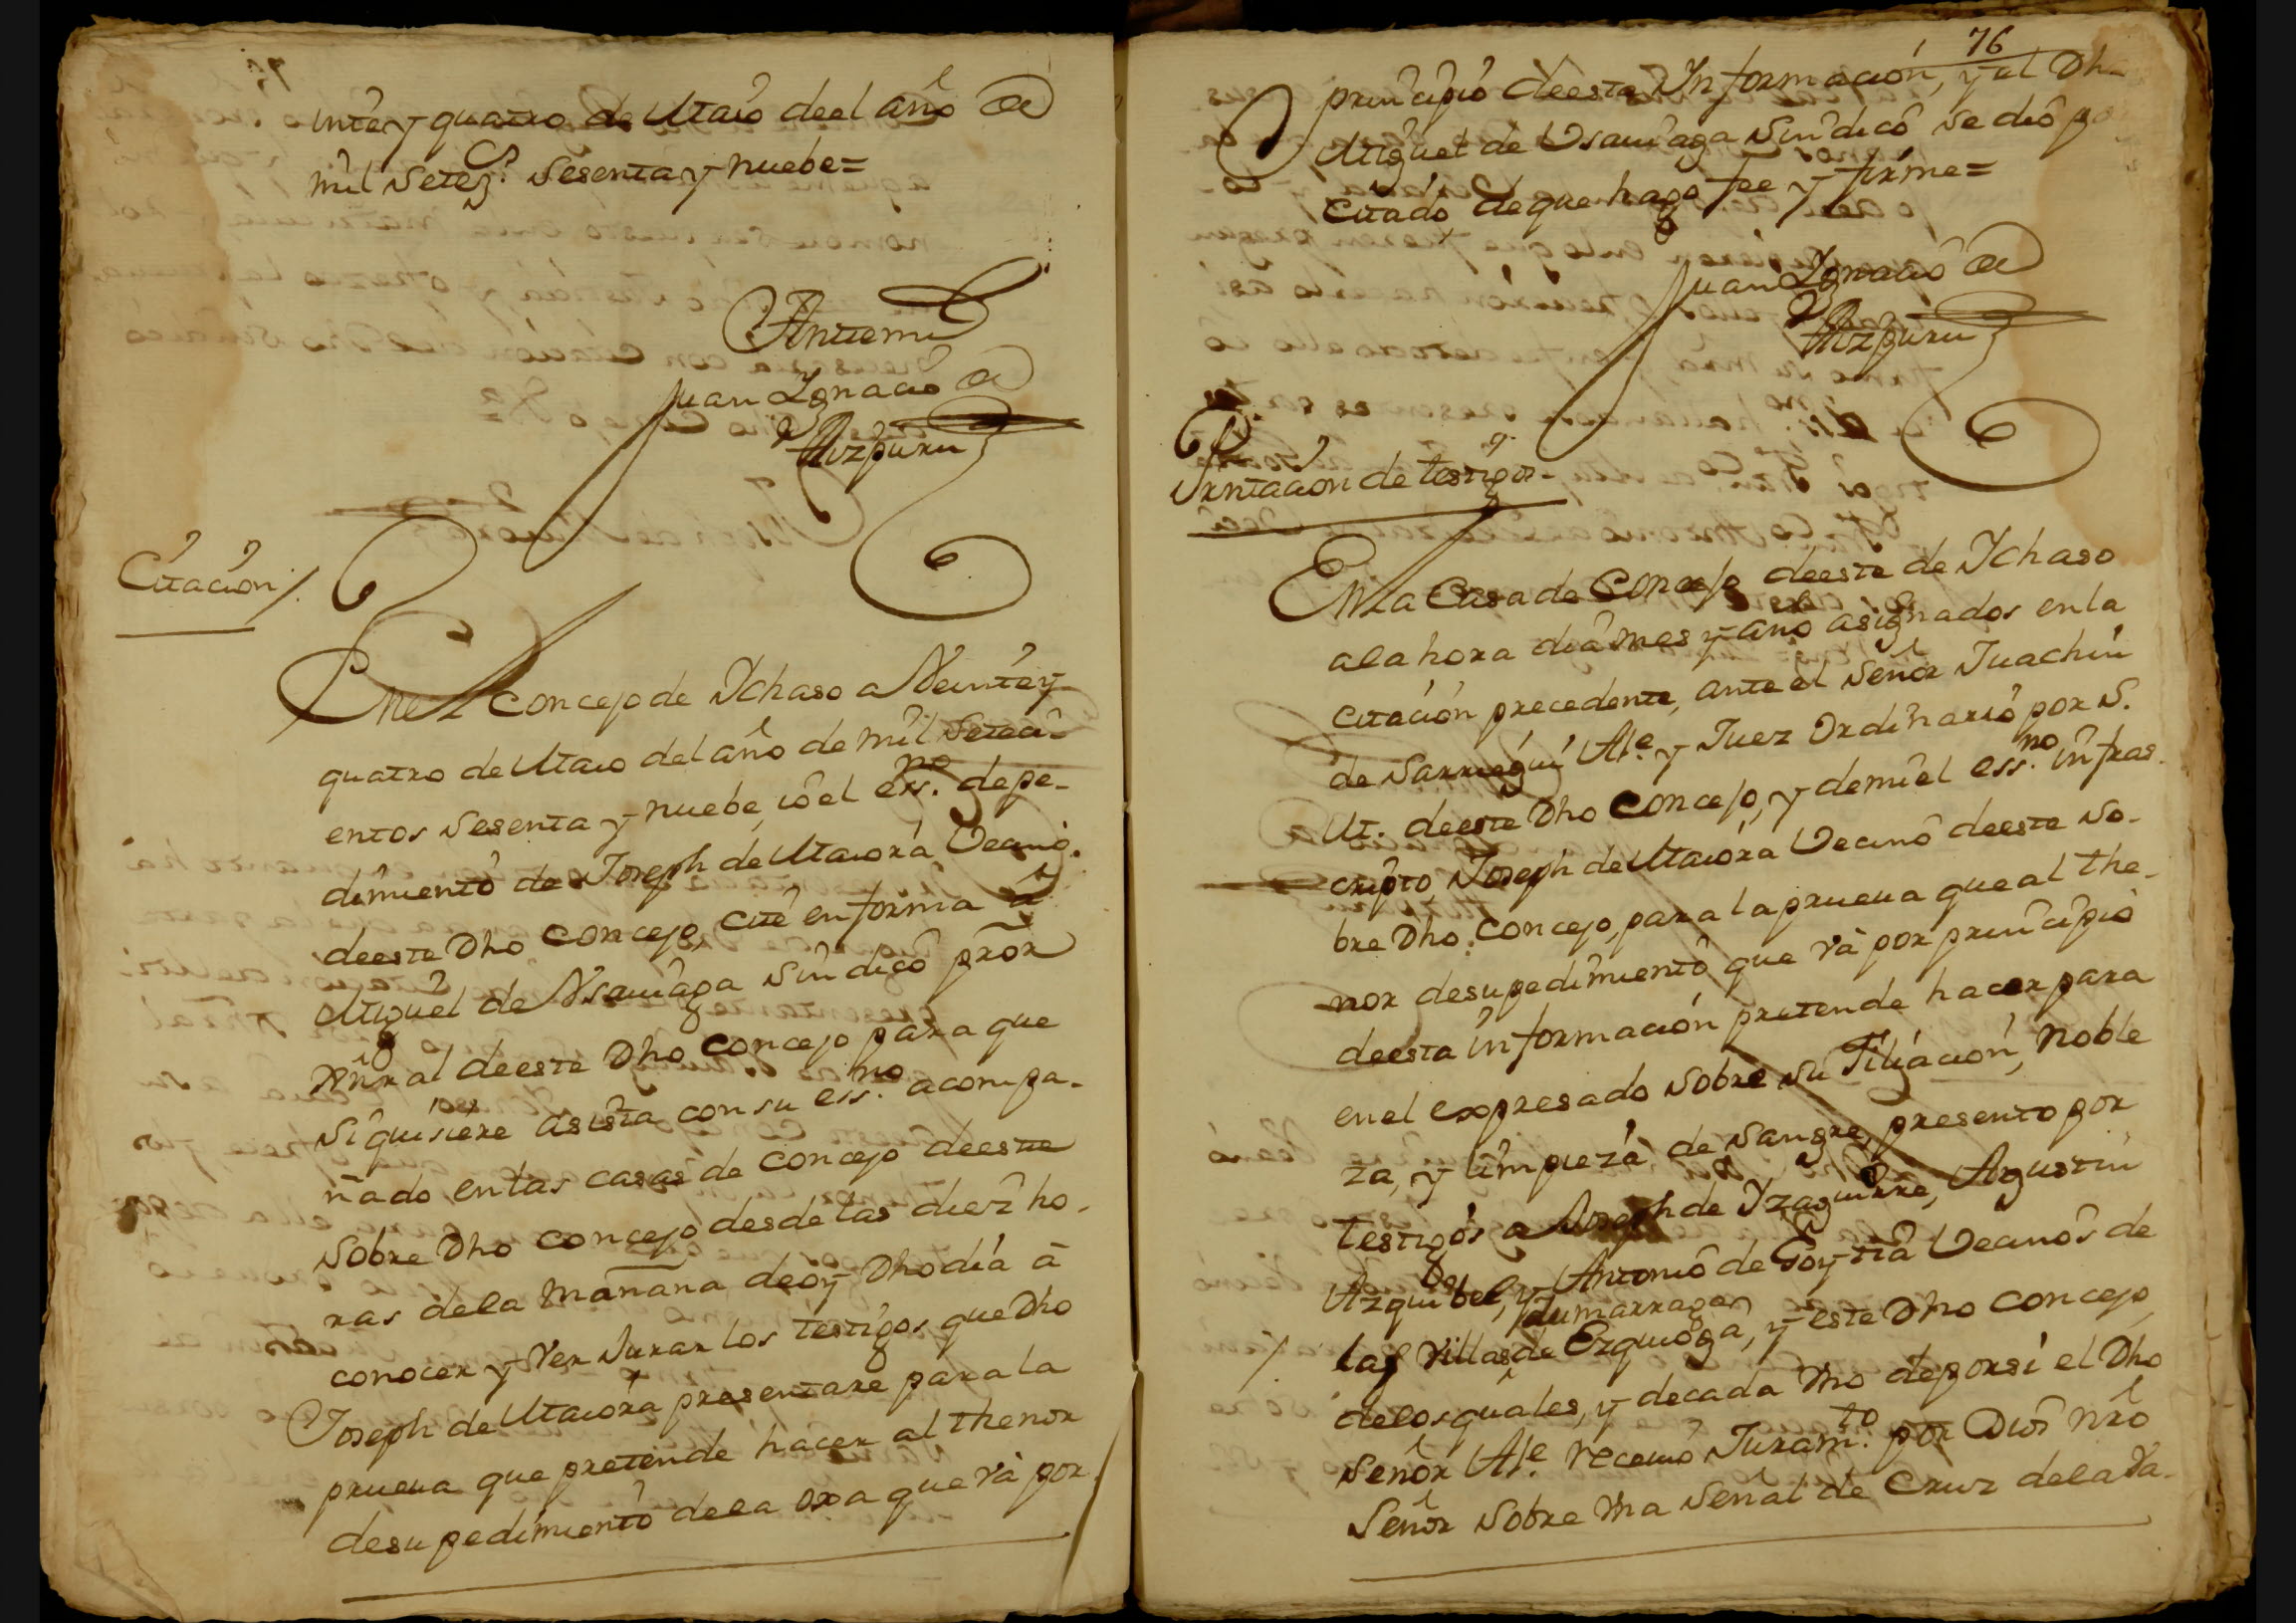 inte y quatro de Maio deel año de
mil setez.s sesenta y nuebe=
Antemi
Juan Ignacio de
Aizpuru
Citacion /.
En el Concejo de Ychaso a Veinte y
quatro de Maio del año de mil seteci-
entos sesenta y nuebe, io el ess.no depe-
dimiento de Joseph de Maiora Vecino
deeste Dho Concejo, cite en forma a
Miguel de Vsauiaga sindico pror
Xnral deeste Dho Concejo para que
si quisiere asista con su ess.no acompa-
ñado, en las casas de Concejo deeste
sobre Dho Concejo desde las diez ho-
ras dela mañana deoy Dho dia à
conocer y Ver Jurar los testigos que Dho
Joseph de Maiora presentare para la
prueua que pretende hacer al thenor
desu pedimiento dela oxa que và por
76
principio deesta Informacion, y el Dho
Miguel de Vsauiaga sindico se dio po
citado de que hago fee y firme=
Juan Ignacio de
Aizpuru
Prntacion de testigos-
En la Casa de Concejo deeste de Ychaso
ala hora dia mes y año asignados en la
citacion precedente, ante el señor Juachin
de Sarriegui Al.e y Juez Ordinario por S.
M. deeste Dho Concejo, y demi el ess.no infras-
cripto Joseph de Maiora Vecino deeste so-
bre Dho. Concejo, para la prueua que al the-
nor desu pedimiento que và por principio
deesta informacion pretende hacer para
en el expresado sobre su Filiacion, noble
za, y limpieza de sangre, presento por
testigos a Joseph de Yzaguirre, Agustin
Azquibel, y Antonio de Goytia Vecinos de
Zumarraga
/. las Villas de Ezquioga, y este Dho Concejo,
delos quales, y decada Vno deporsi el Dho
señor Al.e receuio Juram.to por Dios nro
señor sobre Vna señal de Cruz dela Va-